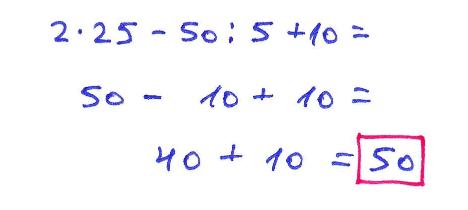 2·25 - 50 : 5 + 10 =
50 - 10 + 10 =
40 + 10 = 50